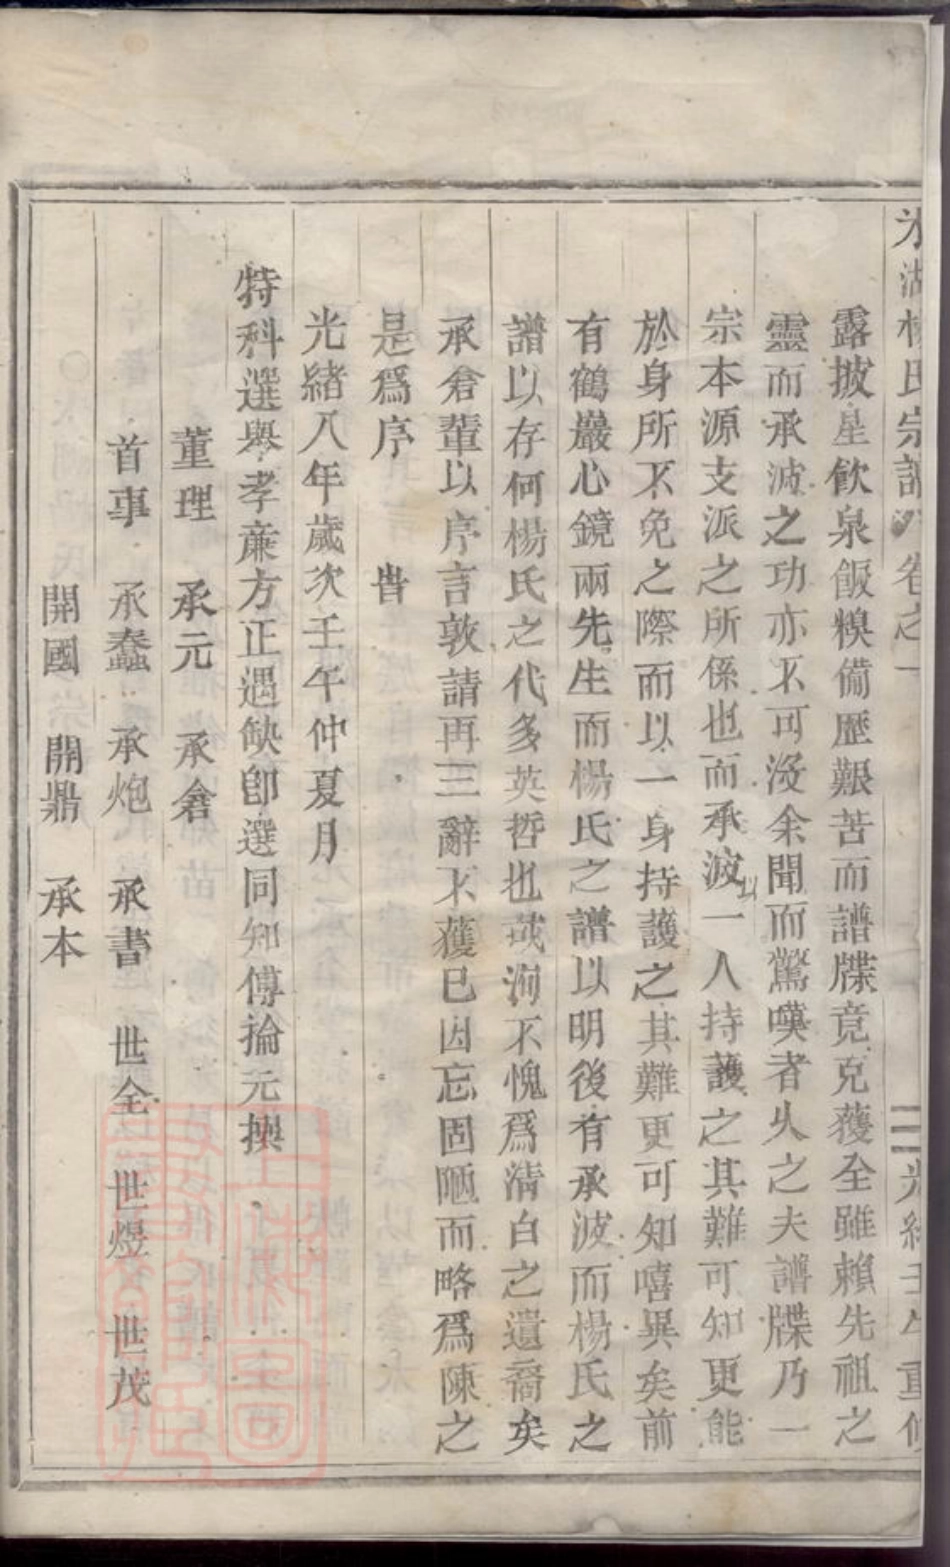 氷湖楊氏宗譜 卷之一 二 光緒壬午重修
露披星飲泉飯糗備歷艱苦而譜牒竟克獲全雖賴先祖之
靈而承波之功亦不可沒余聞而驚嘆者久之夫譜牒乃一
宗本源支派之所係也而承波以一人持護之其難可知更能
於身所不免之際而以一身持護之其難更可知嘻異矣前
有鶴巖心鏡兩先生而楊氏之譜以明後有承波而楊氏之
譜以存何楊氏之代多英哲也哉洵不愧爲清白之遺裔矣
承倉輩以序言敦請再三辭不獲已因忘固陋而略爲陳之
是爲序 旹
光緒八年歲次壬午仲夏月
特科選舉孝亷方正遇缺卽選同知傅掄元撰
董理 承元 承倉
首事 承蠡 承炮 承書 世全 世煜 世茂
開國 開鼎 承本